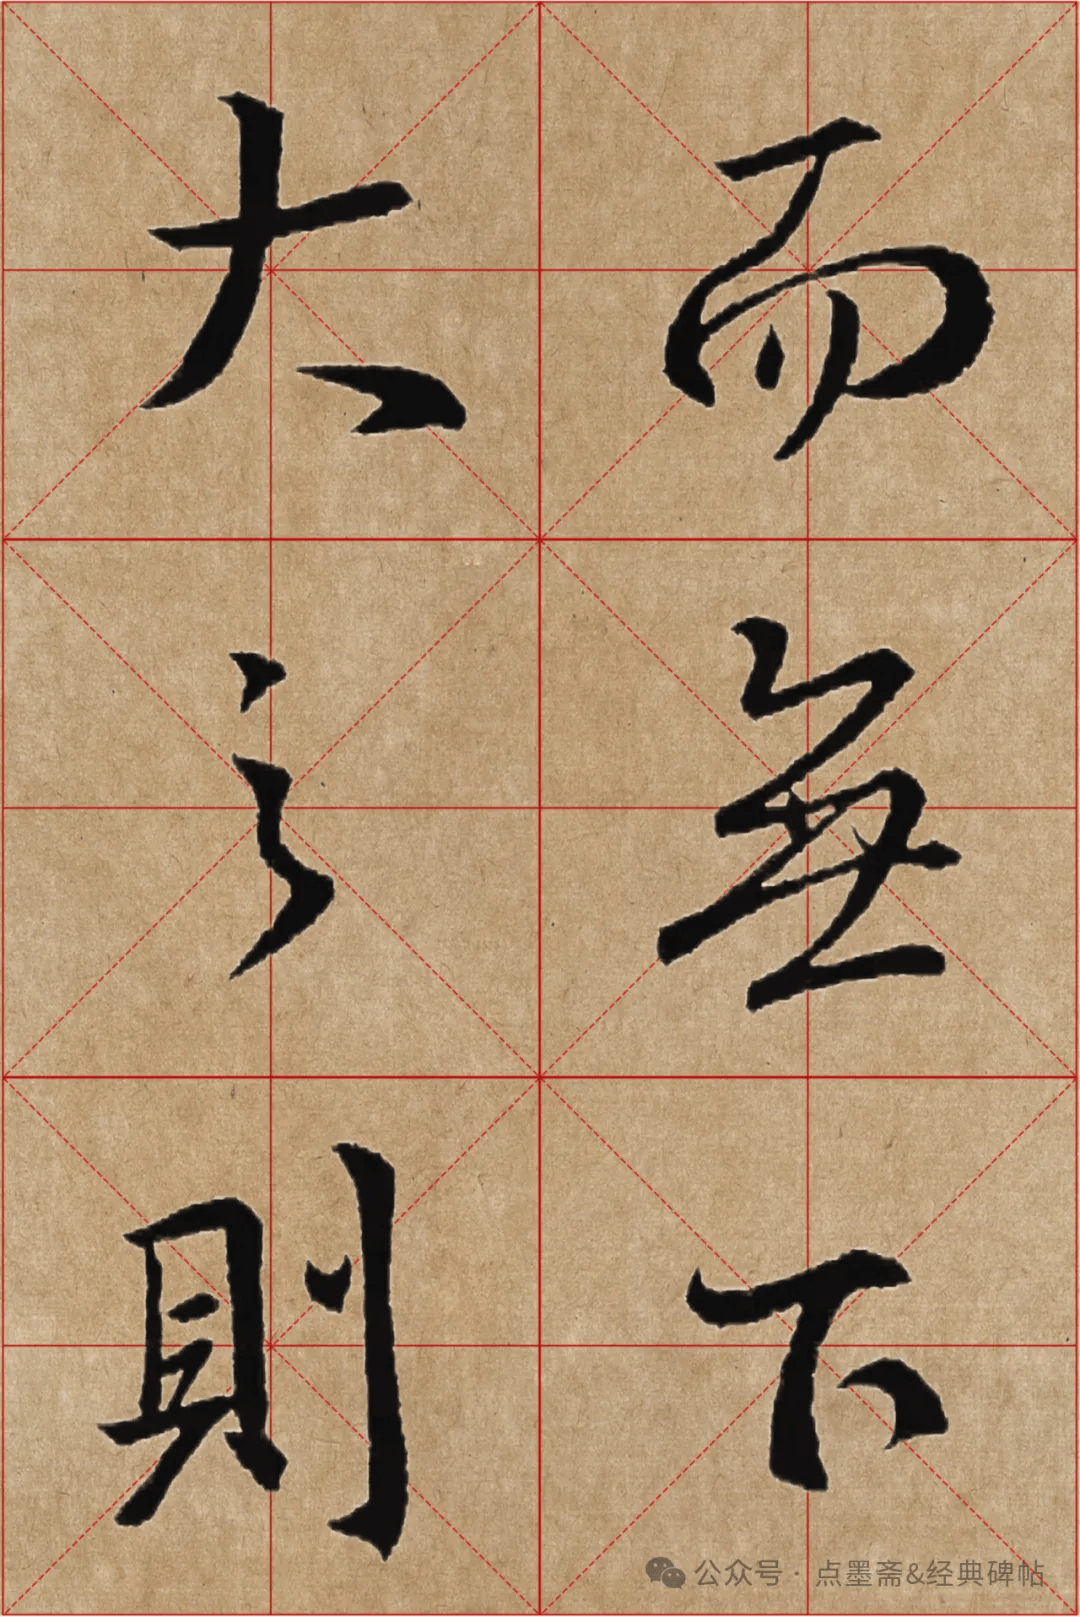 而無下
大之則
公众号 · 点墨斋&经典碑帖